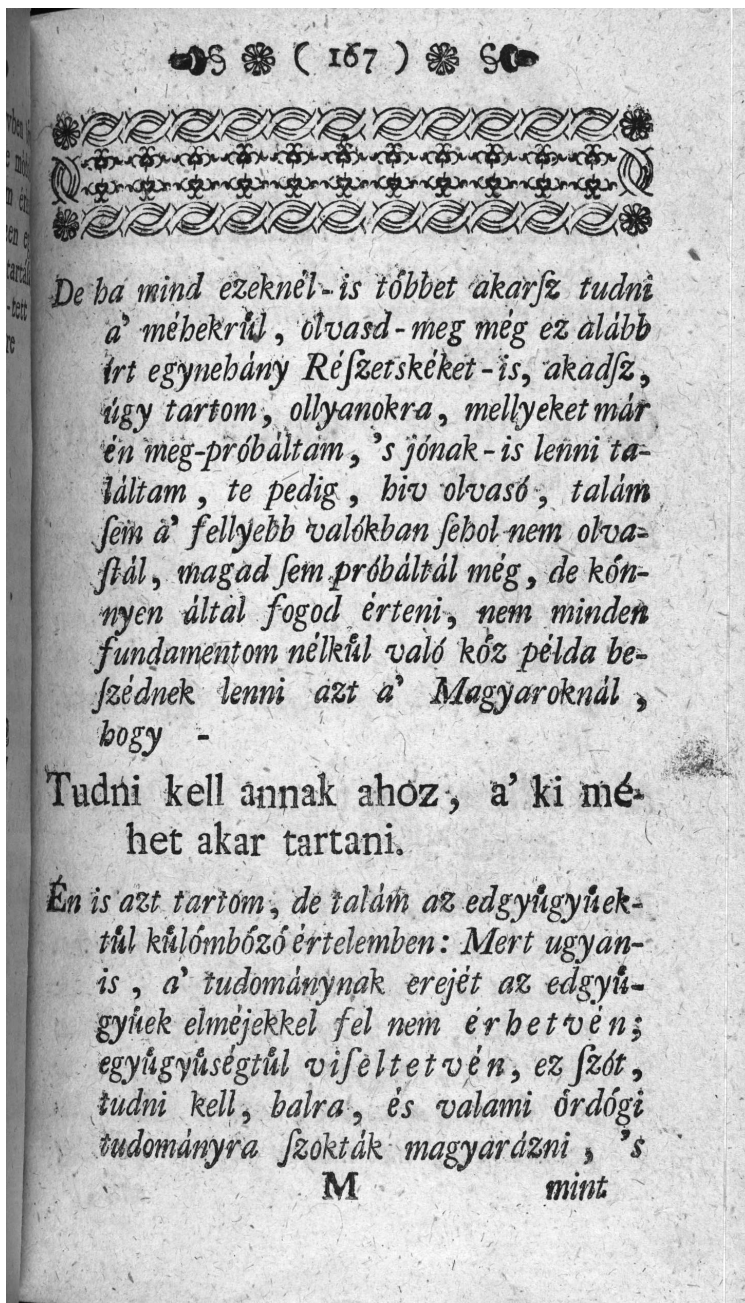 ( 167 )
De ha mind ezeknél-is tőbbet akarſz tudni
a' méhekrűl, olvasd-meg még ez alább
írt egynehány Réſzetskéket-is, akadſz,
úgy tartom, ollyanokra, mellyeket már
én meg-próbáltam, 's jónak-is lenni ta-
láltam, te pedig, hiv olvasó, talám
ſem a' fellyebb valókban ſehol nem olva-
ſtál, magad ſem próbáltál még, de kőn-
nyen által fogod érteni, nem minden
fundamentom nélkűl való kőz példa be-
ſzédnek lenni azt a' Magyaroknál,
hogy -
Tudni kell annak ahoz, a' ki mé-
het akar tartani.
Én is azt tartom, de talám az edgyűgyűek-
tűl kűlőmbőző értelemben: Mert ugyan-
is, a' tudománynak erejét az edgyű-
gyűek elméjekkel fel nem érhetvén;
egyűgyűségtűl viſeltetvén, ez ſzót,
tudni kell, balra, és valami őrdőgi
tudományra ſzokták magyarázni, 's
M mint